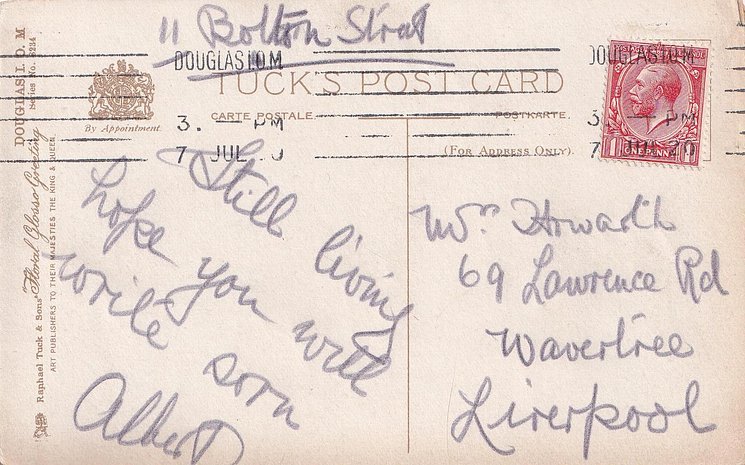 11 Bolton Strat
DOUGLAS I.O.M
DOUGLAS I.O.M
TUCK'S POST CARD
CARTE POSTALE.
POSTKARTE.
(FOR ADDRESS ONLY).
3. — PM
7 JUL 20
3. — PM
7 JUL 20
1 ONE PENNY 1
By Appointment.
DOUGLAS, I. O. M
Series No. 5234
Raphael Tuck & Sons' "Floral Glosso Greeting"
ART PUBLISHERS TO THEIR MAJESTIES THE KING & QUEEN.
Still living
hope you will
write soon
Albert
Mrs Howarth
69 Lawrence Rd
Wavertree
Liverpool